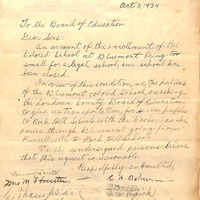 Oct 3 1934
To the Board of Education
Dear Sirs:
On account of the enrollment of the
Colored School at Bluemont being too
small for a legal school, our school has
been closed.
In view of this condition, we the patrons
of the Bluemont colored school, are asking
the Loudoun County Board of Education
to give us transportation, for our
to Rock Hill School with the
passes through Bluemont going from
to Rock Hill School.
We the undersigned persons believe
that this request is reasonable.
Respectfully submitted,